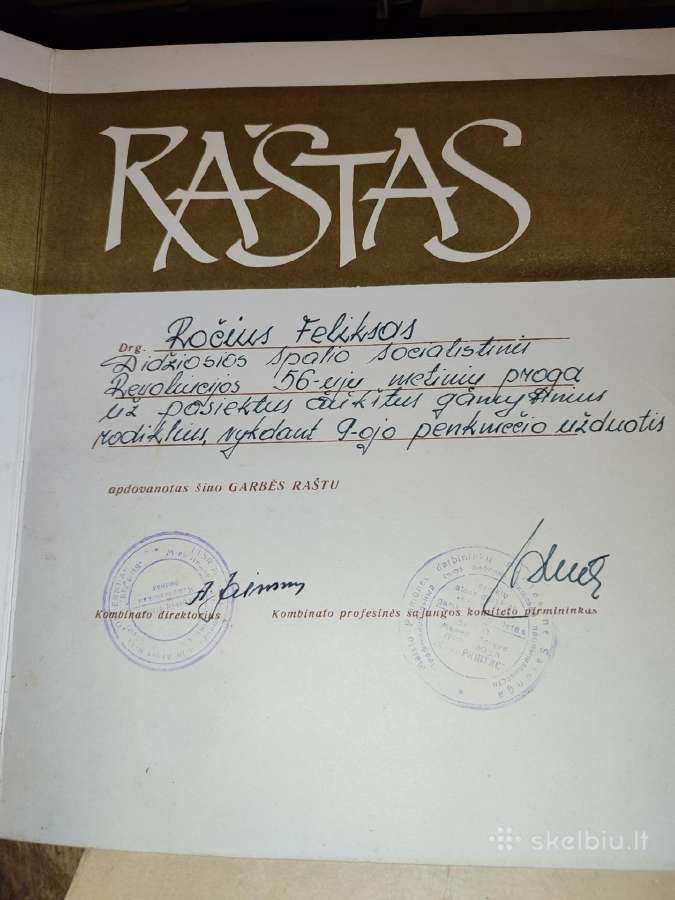 RAŠTAS
Drg. Ročius Feliksas
Didžiosios Spalio Socialistinės
Revoliucijos 56-ųjų metinių proga
už pasiektus aukštus gamybinius
rodiklius, vykdant 9-ojo penkmečio užduotis
apdovanotas šiuo GARBĖS RAŠTU
Kombinato direktorius Kombinato profesinės sąjungos komiteto pirmininkas
skelbiu.lt